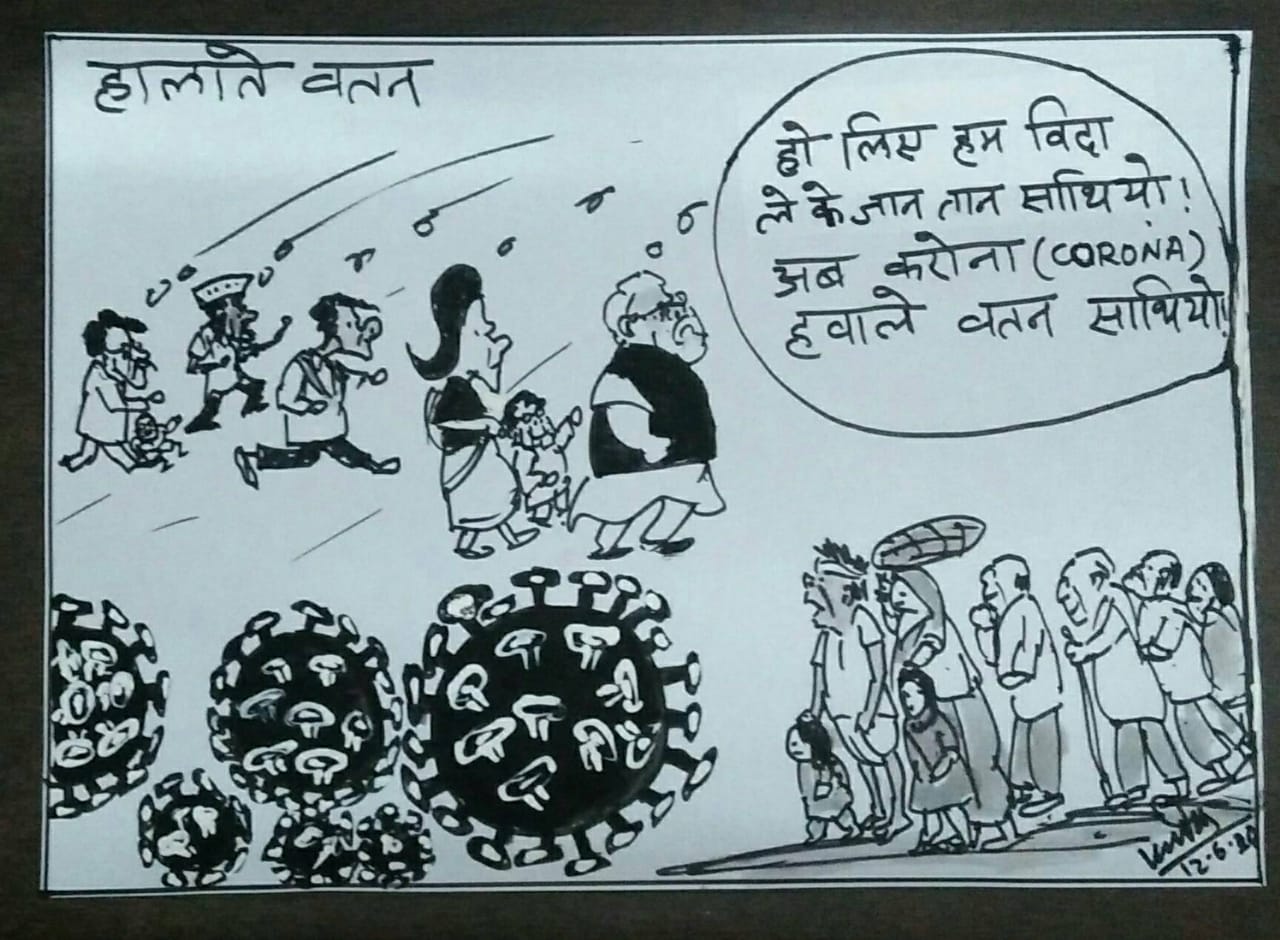 हालाते वतन
हो लिए हम विदा
ले के जान तान साथियो!
अब करोना (CORONA)
हवाले वतन साथियो!
12-6-20